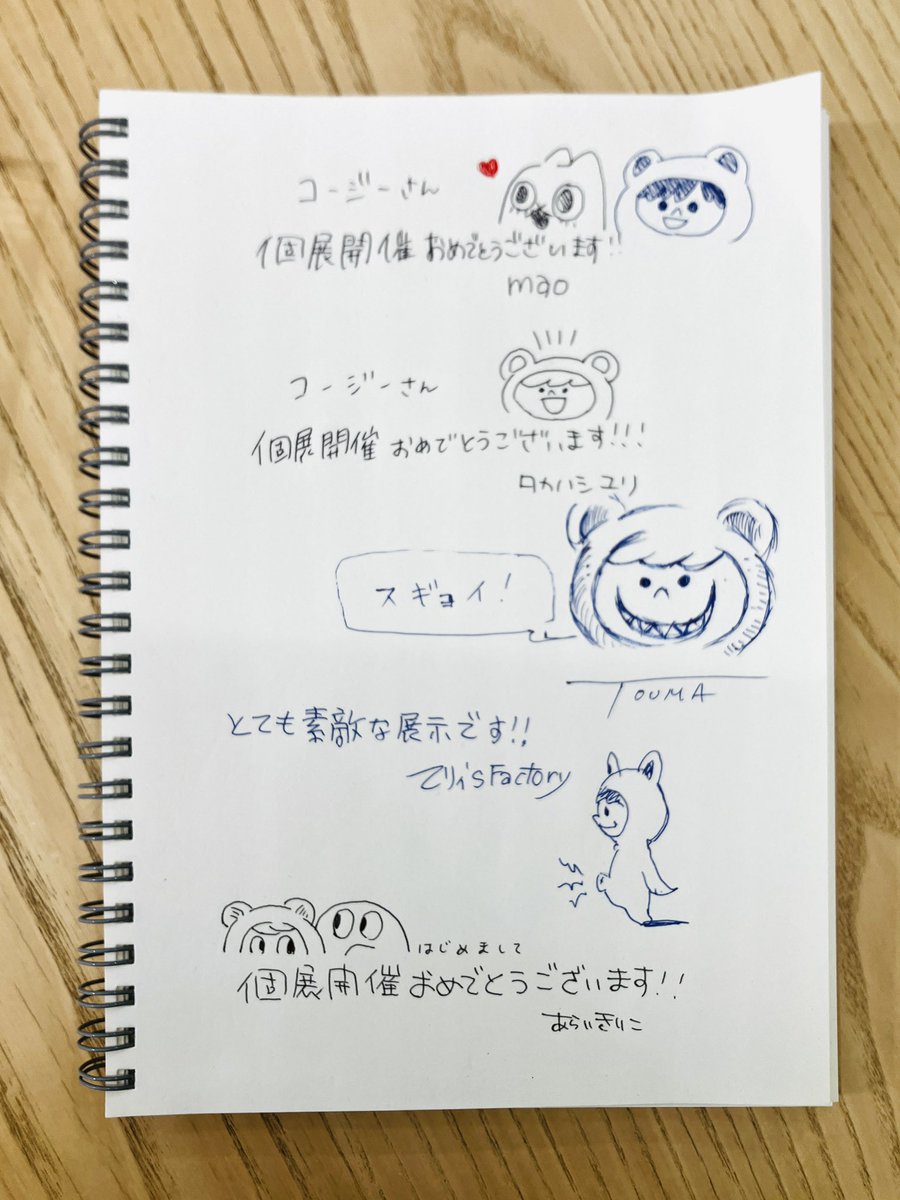 コージーさん
個展開催おめでとうございます!!
mao
コージーさん
個展開催おめでとうございます!!!
タカハシユリ
スギョイ!
TOUMA
とても素敵な展示です!!
てりぃ'sFactory
はじめまして
個展開催おめでとうございます!!
あらいきりこ